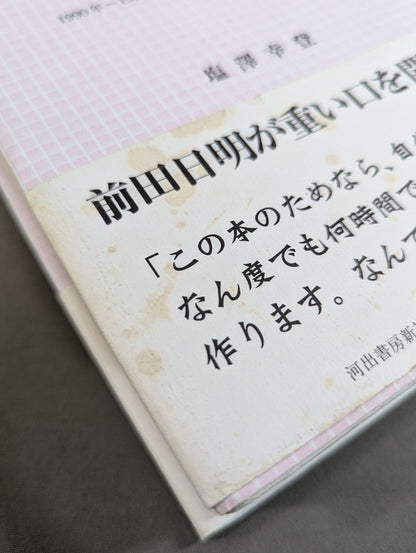 1990年〜19
塩澤幸登
前田日明が重い口を
「この本のためなら、自
なん度でも何時間で
作ります。なんで
河出書房新